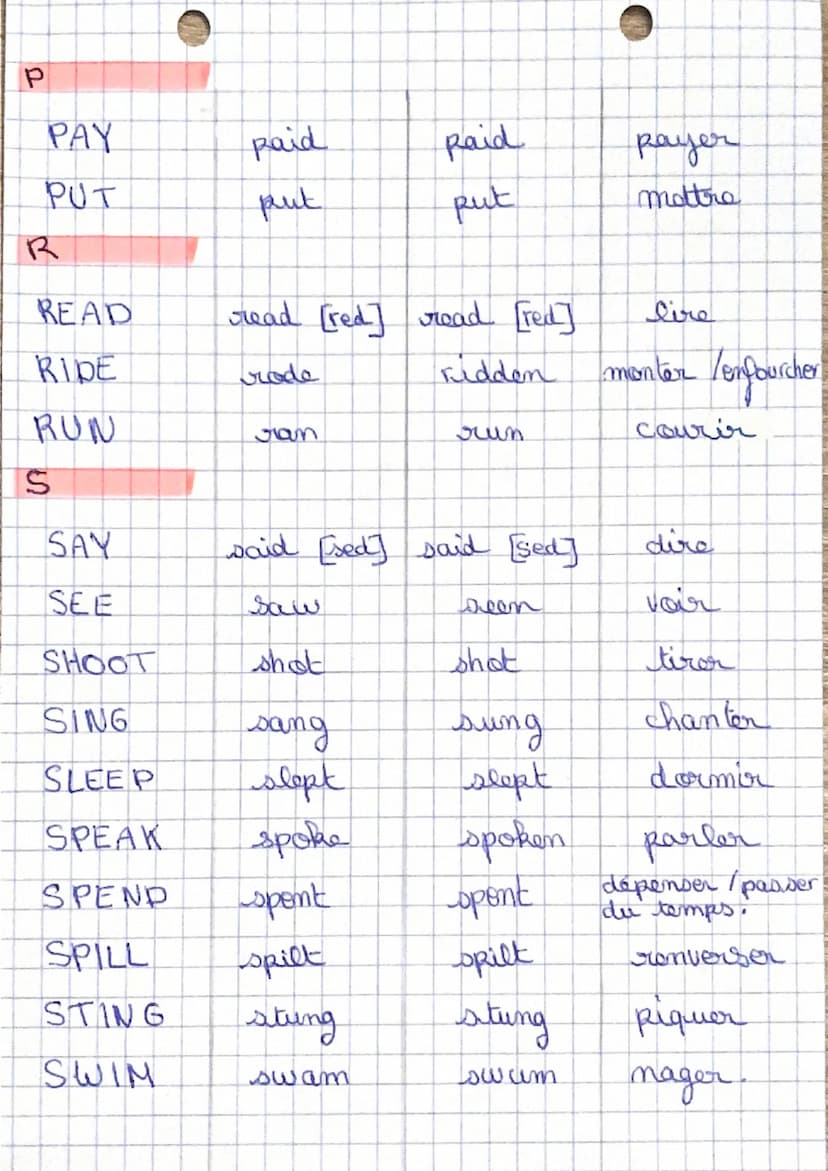 P
PAY paid paid payer
PUT put put mettre
R
READ read [red] read [red] lire
RIDE rode ridden monter / enfourcher
RUN ran run courir
S
SAY said [sed] said [sed] dire
SEE saw seen voir
SHOOT shot shot tirer
SING sang sung chanter
SLEEP slept slept dormir
SPEAK spoke spoken parler
SPEND spent spent dépenser / passer
du temps.
SPILL spilt spilt renverser
STING stung stung piquer
SWIM swam swum nager.